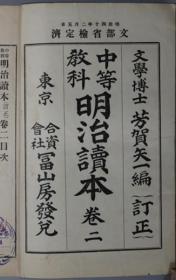 明治四十年二月五日
文部省檢定濟
文學博士 芳賀矢一編 訂正
中等教科 明治讀本 卷二
東京 合資會社 冨山房發兌
明治讀本 卷二目次